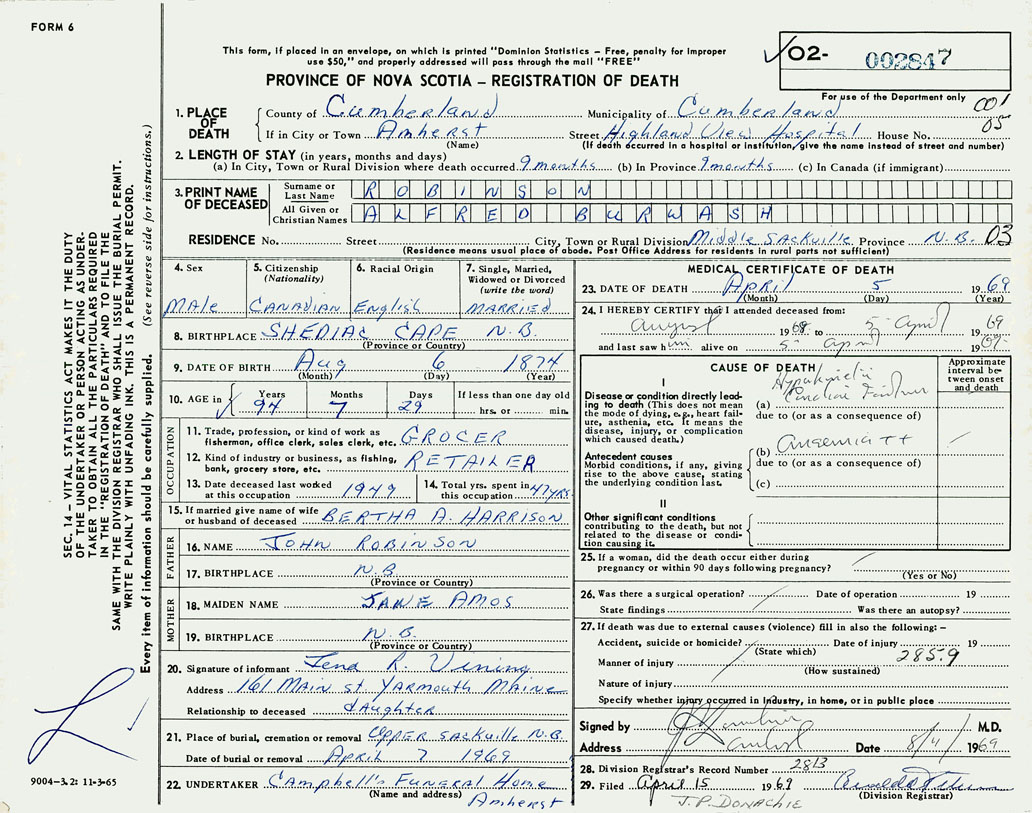 FORM 6
This form, if placed in an envelope, on which is printed "Dominion Statistics – Free, penalty for improper
use $50," and properly addressed will pass through the mail "FREE"
PROVINCE OF NOVA SCOTIA – REGISTRATION OF DEATH
O2- 002847
For use of the Department only
001
05
1. PLACE OF DEATH
County of Cumberland Municipality of Cumberland
If in City or Town Amherst Street Highland View Hospital House No.
(Name) (If death occurred in a hospital or institution, give the name instead of street and number)
2. LENGTH OF STAY (in years, months and days)
(a) In City, Town or Rural Division where death occurred 9 months (b) In Province 9 months (c) In Canada (if immigrant)
3. PRINT NAME OF DECEASED
Surname or Last Name ROBINSON
All Given or Christian Names ALFRED BURWASH
RESIDENCE No. Street City, Town or Rural Division Middle Sackville Province N.B. 03
(Residence means usual place of abode. Post Office Address for residents in rural parts not sufficient)
4. Sex Male
5. Citizenship (Nationality) CANADIAN
6. Racial Origin English
7. Single, Married, Widowed or Divorced (write the word) MARRIED
8. BIRTHPLACE SHEDIAC CAPE N.B.
(Province or Country)
9. DATE OF BIRTH Aug 6 1874
(Month) (Day) (Year)
10. AGE in Years 94 Months 7 Days 29 If less than one day old hrs. or min.
OCCUPATION
11. Trade, profession or kind of work as fisherman, office clerk, sales clerk, etc. GROCER
12. Kind of industry or business, as fishing, bank, grocery store, etc. RETAILER
13. Date deceased last worked at this occupation 1949
14. Total yrs. spent in this occupation 47 yrs.
15. If married give name of wife or husband of deceased BERTHA A. HARRISON
FATHER
16. NAME JOHN ROBINSON
17. BIRTHPLACE N.B.
(Province or Country)
MOTHER
18. MAIDEN NAME JANE AMOS
19. BIRTHPLACE N.B.
(Province or Country)
20. Signature of informant R. Vining
Address 161 Main St Yarmouth Maine
Relationship to deceased daughter
21. Place of burial, cremation or removal Upper Sackville N.B.
Date of burial or removal April 7 1969
22. UNDERTAKER Campbell's Funeral Home
(Name and address) Amherst
MEDICAL CERTIFICATE OF DEATH
23. DATE OF DEATH April 5 1969
(Month) (Day) (Year)
24. I HEREBY CERTIFY that I attended deceased from:
August 1968 to 5 April 1969
and last saw him alive on 5 April 1969
CAUSE OF DEATH
Approximate interval between onset and death
I
Disease or condition directly leading to death (This does not mean the mode of dying, e.g., heart failure, asthenia, etc. It means the disease, injury, or complication which caused death.)
(a)
due to (or as a consequence of)
Antecedent causes
Morbid conditions, if any, giving rise to the above cause, stating the underlying condition last.
(b)
due to (or as a consequence of)
(c)
II
Other significant conditions contributing to the death, but not related to the disease or condition causing it.
25. If a woman, did the death occur either during pregnancy or within 90 days following pregnancy?
(Yes or No)
26. Was there a surgical operation? Date of operation 19
State findings Was there an autopsy?
27. If death was due to external causes (violence) fill in also the following: –
Accident, suicide or homicide? Date of injury 19
(State which) 285.9
Manner of injury
(How sustained)
Nature of injury
Specify whether injury occurred in industry, in home, or in public place
Signed by M.D.
Address Date 8/4/1969
28. Division Registrar's Record Number 2813
29. Filed April 15 1969
(Division Registrar)
J.P. DONACHIE
SEC. 14 – VITAL STATISTICS ACT MAKES IT THE DUTY
OF THE UNDERTAKER OR PERSON ACTING AS UNDER-
TAKER TO OBTAIN ALL THE PARTICULARS REQUIRED
IN THE "REGISTRATION OF DEATH" AND TO FILE THE
SAME WITH THE DIVISION REGISTRAR WHO SHALL ISSUE THE BURIAL PERMIT.
WRITE PLAINLY WITH UNFADING INK. THIS IS A PERMANENT RECORD.
Every item of information should be carefully supplied. (See reverse side for instructions.)
9004-3.2: 11-3-65